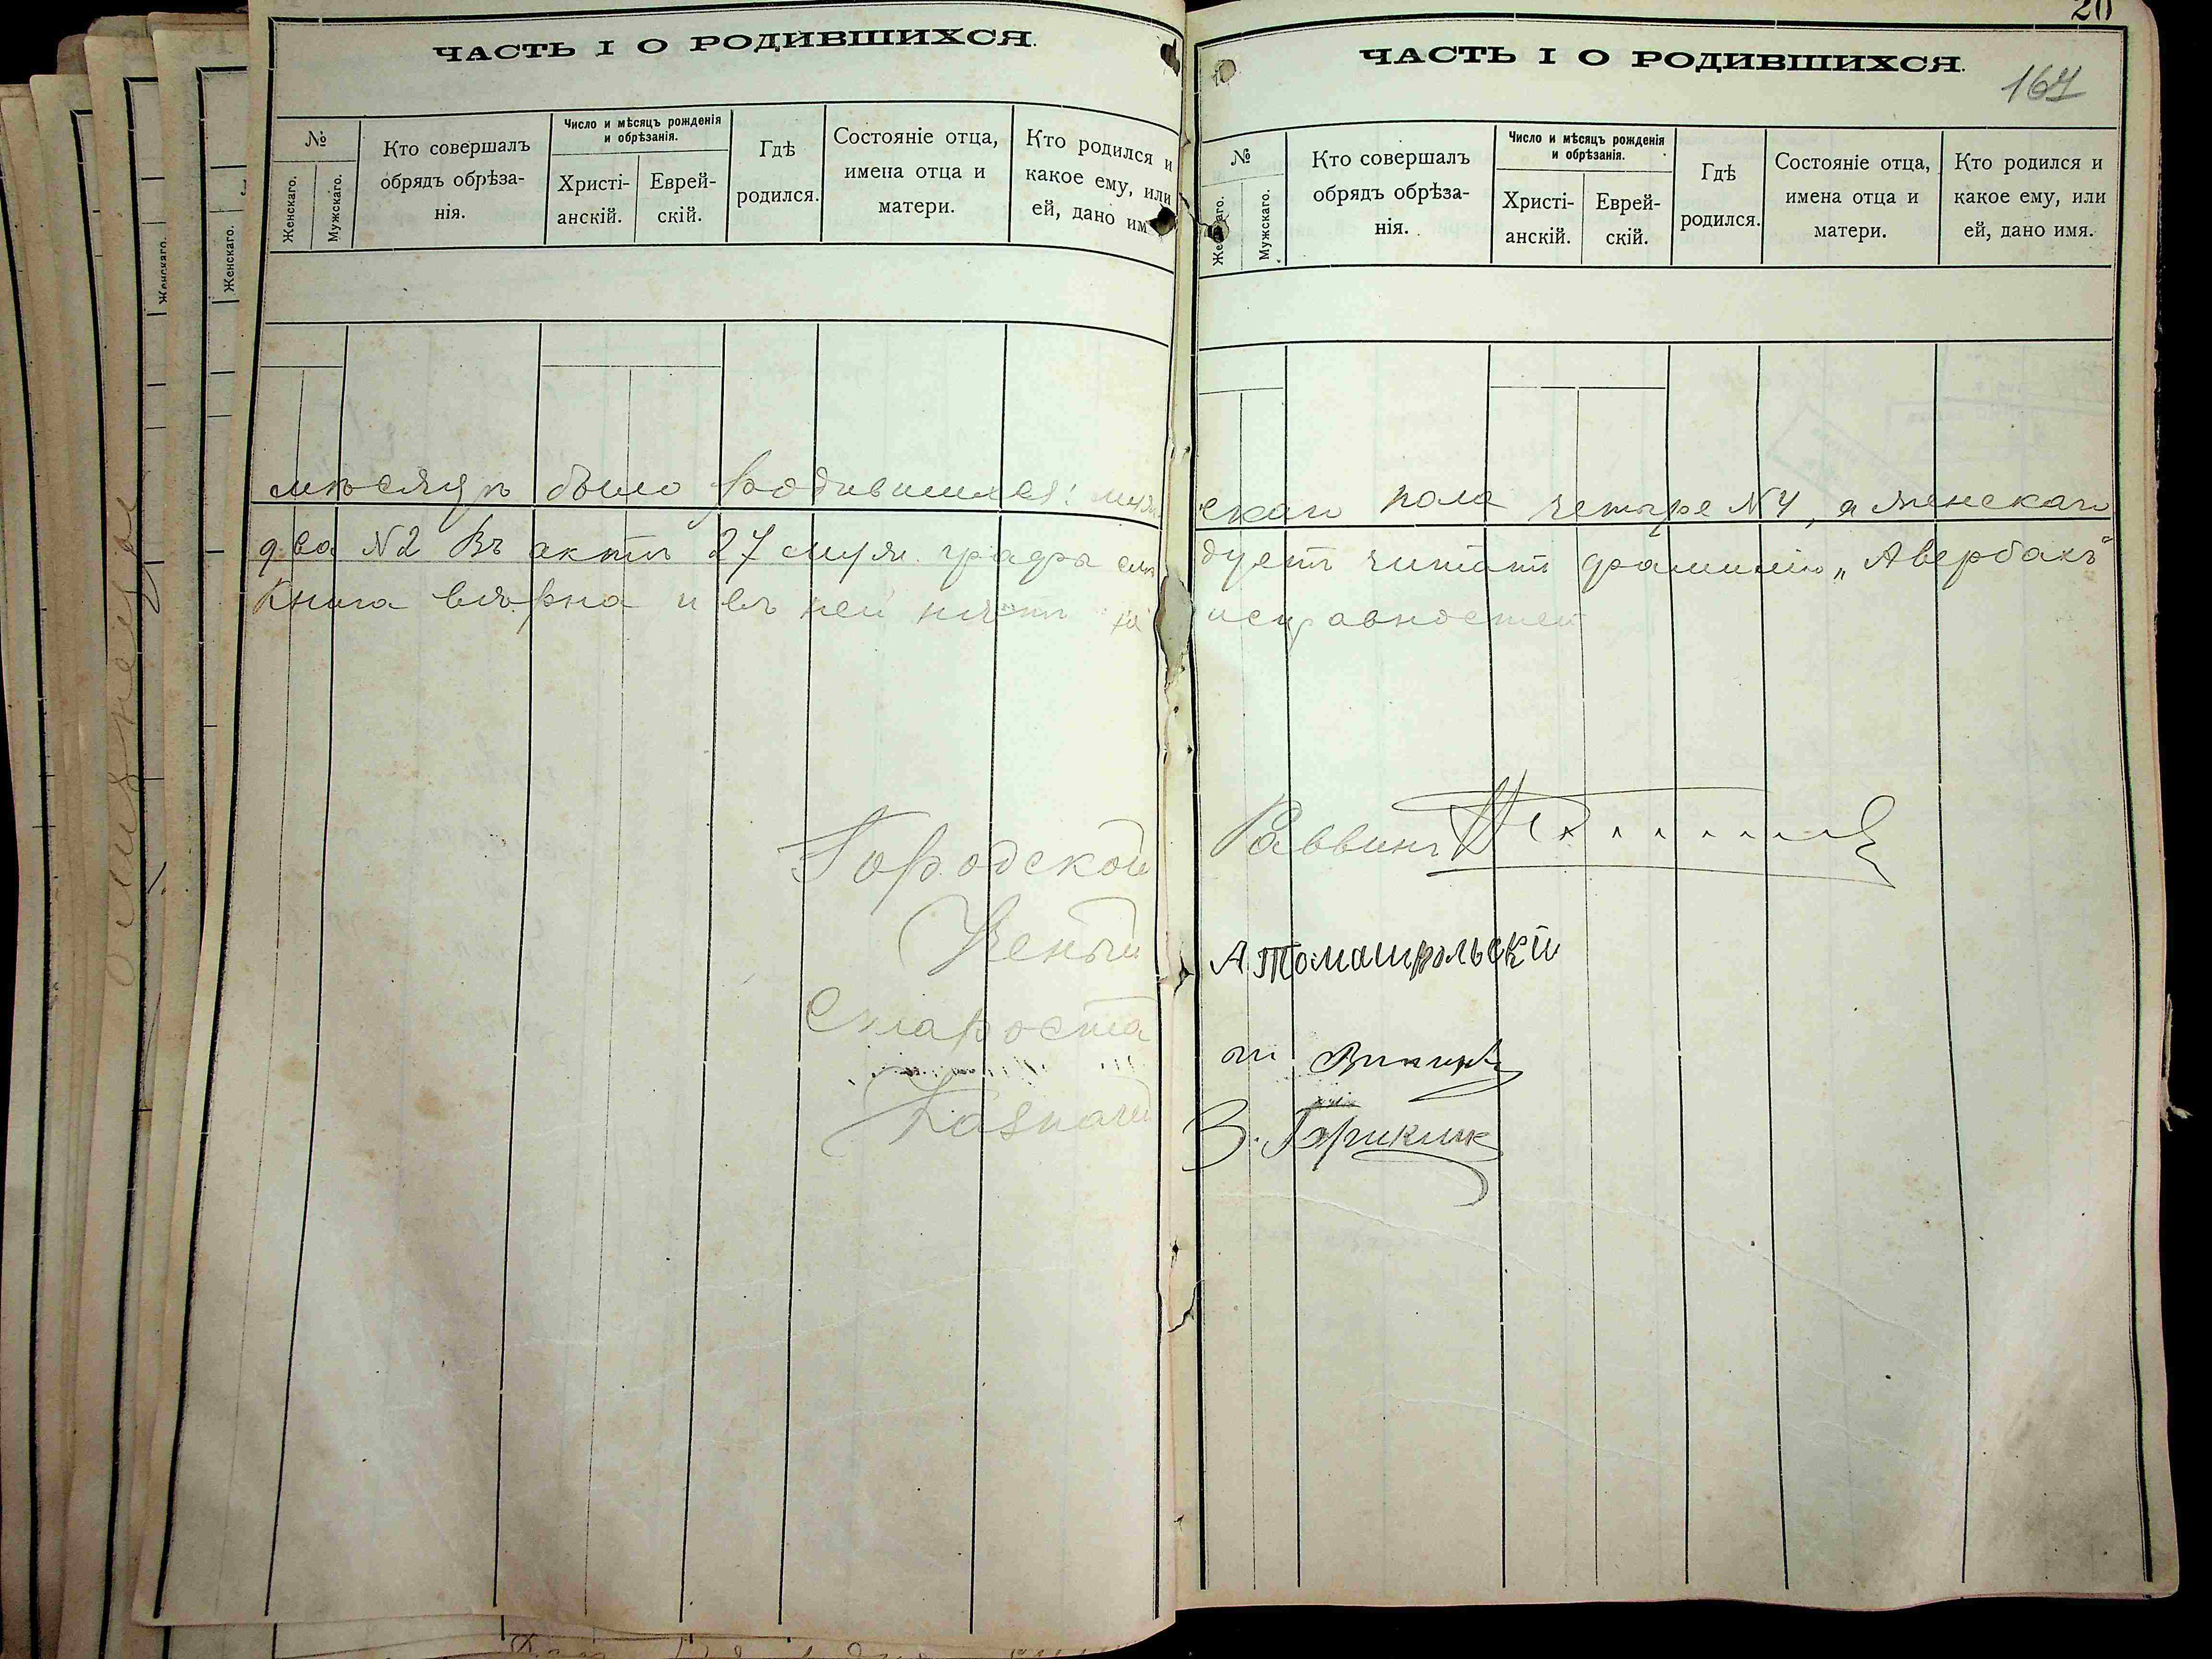 ЧАСТЬ I О РОДИВШИХСЯ.
№
Женскаго.
Мужскаго.
Кто совершалъ
обрядъ обрѣза-
нія.
Число и мѣсяцъ рожденія
и обрѣзанія.
Христі-
анскій.
Еврей-
скій.
Гдѣ
родился.
Состояніе отца,
имена отца и
матери.
Кто родился и
какое ему, или
ей, дано им
20
ЧАСТЬ I О РОДИВШИХСЯ.
164
№
Женскаго.
Мужскаго.
Кто совершалъ
обрядъ обрѣза-
нія.
Число и мѣсяцъ рожденія
и обрѣзанія.
Христі-
анскій.
Еврей-
скій.
Гдѣ
родился.
Состояніе отца,
имена отца и
матери.
Кто родился и
какое ему, или
ей, дано имя.
мѣсяцъ было родившихся: муж скаго пола четыре №4, а женскаго
два №2 Въ актѣ 27 муж. графы слѣ дуетъ читать фамилію „Авербахъ"
Книга вѣрна и въ ней нѣтъ не исправностей
Городской Раввинъ
Ученый А Томашпольскій
Староста
Казначей З. Брикник
Женскаго.
Женскаго.